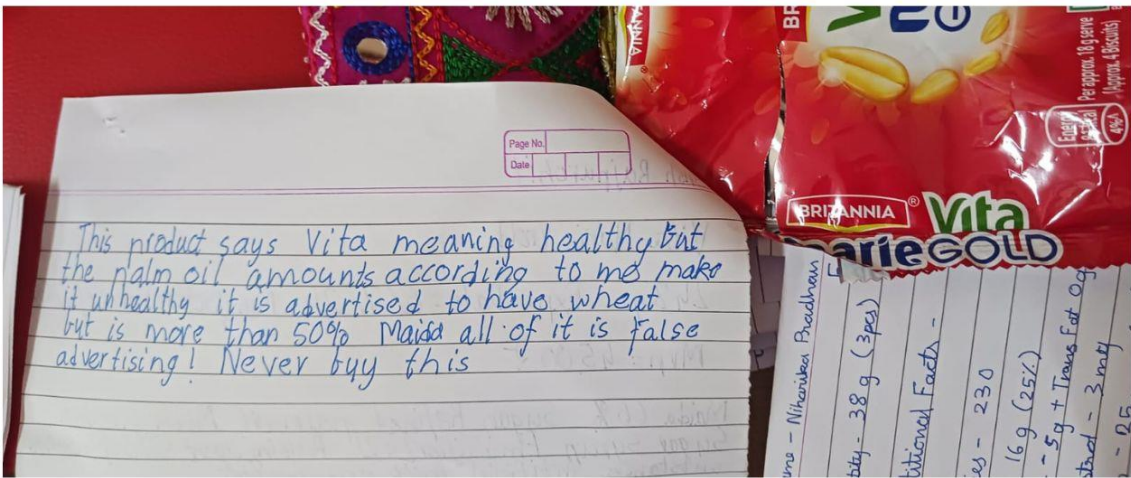 Page No.
Date
This product says Vita meaning healthy But
the palm oil amounts according to me make
it unhealthy it is advertised to have wheat
but is more than 50% Maida all of it is False
advertising! Never buy this
BRITANNIA
Vita
arieGOLD
Per approx. 18 g serve
(Approx. 4 Biscuits)
Energy
4%^
me - Niharika Pradhan
tity - 38 g (3pcs)
itional Facts -
es - 230
16 g (25%)
- 5g + Trans Fat 0g
strol - 3 mg
- 25